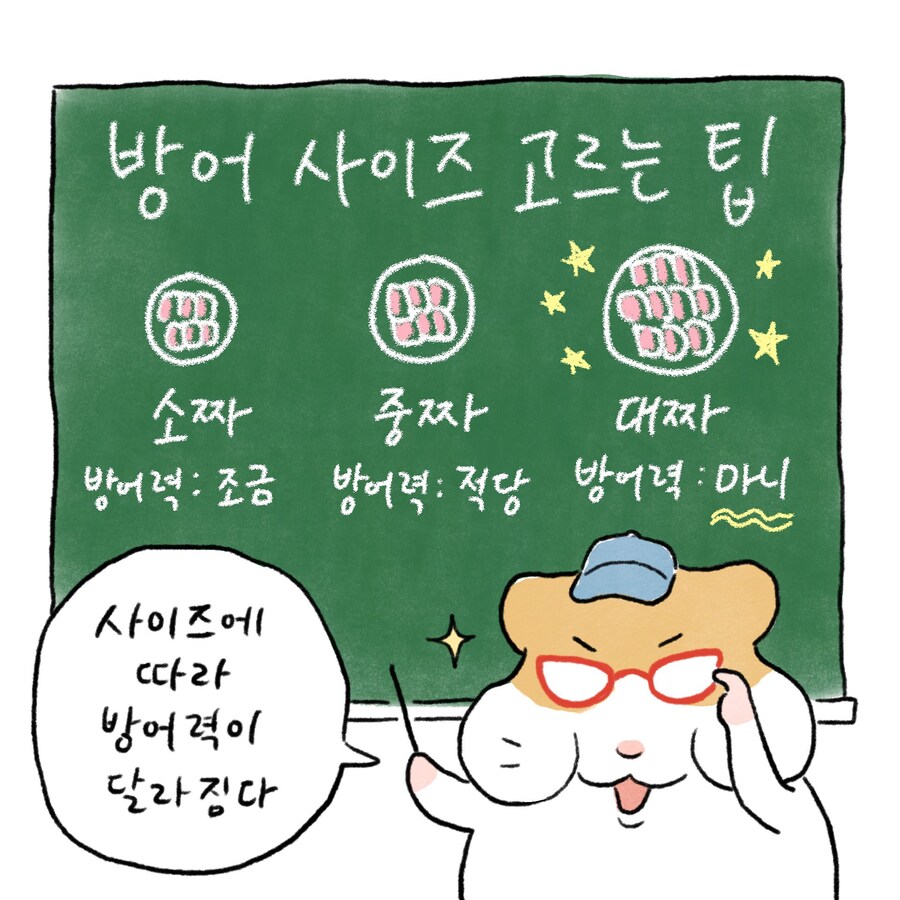 방어 사이즈 고르는 팁
소짜
중짜
대짜
방어력: 조금
방어력: 적당
방어력: 마니
사이즈에
따라
방어력이
달라짐다